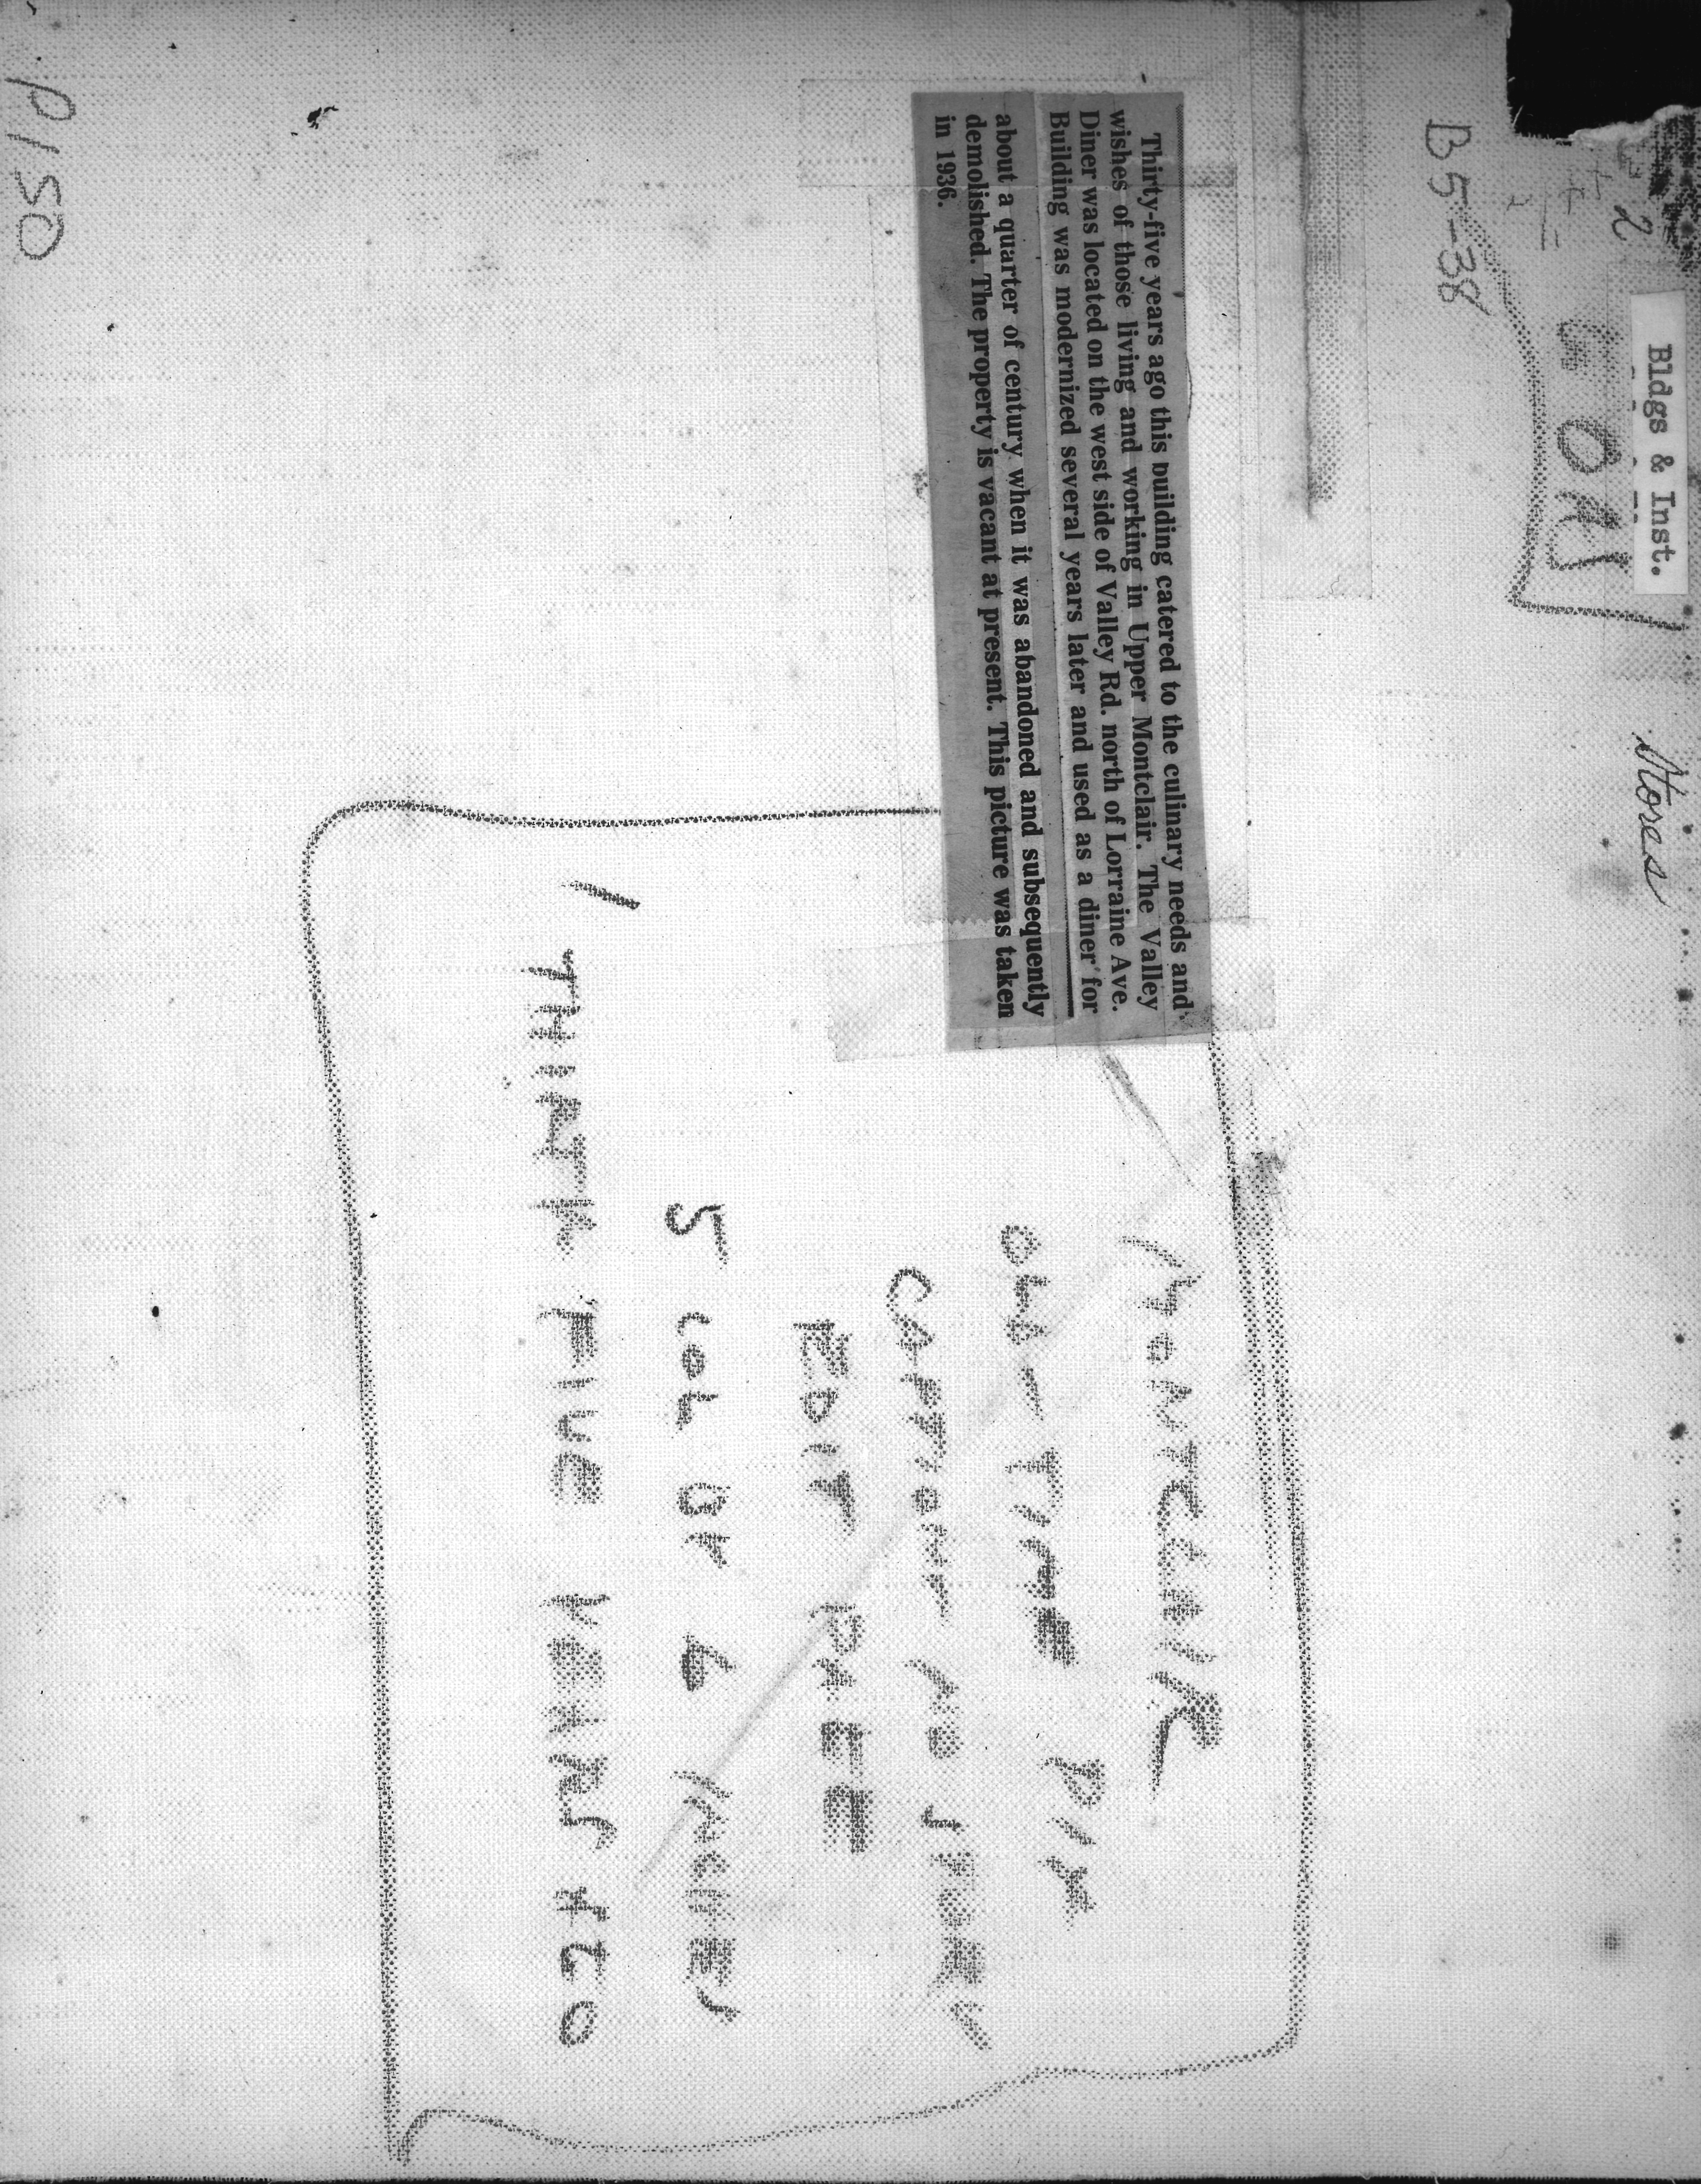 Bldgs & Inst.
Stores
2
B5-38
Thirty-five years ago this building catered to the culinary needs and
wishes of those living and working in Upper Montclair. The Valley
Diner was located on the west side of Valley Rd. north of Lorraine Ave.
Building was modernized several years later and used as a diner for
about a quarter of century when it was abandoned and subsequently
demolished. The property is vacant at present. This picture was taken
in 1936.
MONTCLAIR
OLD TIME PIX
CAPTION NO STORY
EDIT PAGE
5 COL BY 6 INCHES
THIRTY FIVE YEARS AGO
P150